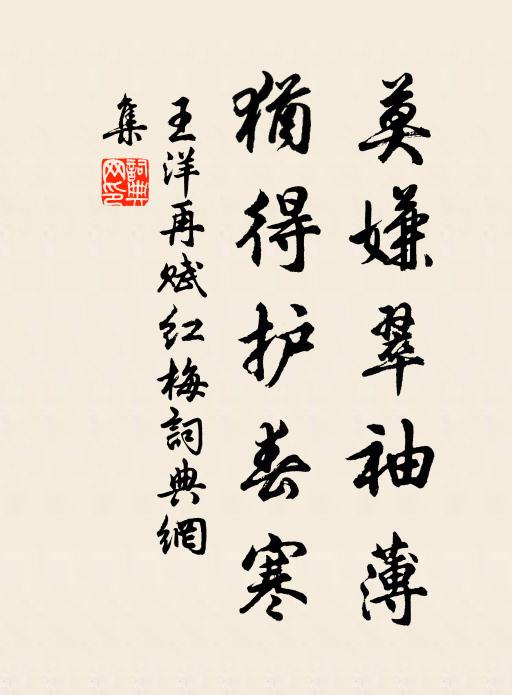 莫嫌翠袖薄
猶得护春寒
王洋再赋红梅詞典網
集
詞典
网印